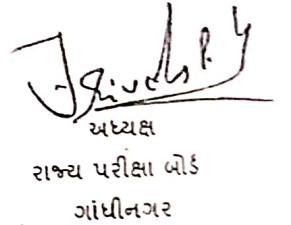 અધ્યક્ષ
રાજ્ય પરીક્ષા બોર્ડ
ગાંધીનગર